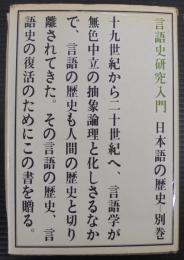 言語史研究入門 日本語の歴史 別巻
十九世紀から二十世紀へ、言語学が
無色中立の抽象論理と化しさるなか
で、言語の歴史も人間の歴史と切り
離されてきた。その言語の歴史、言
語史の復活のためにこの書を贈る。